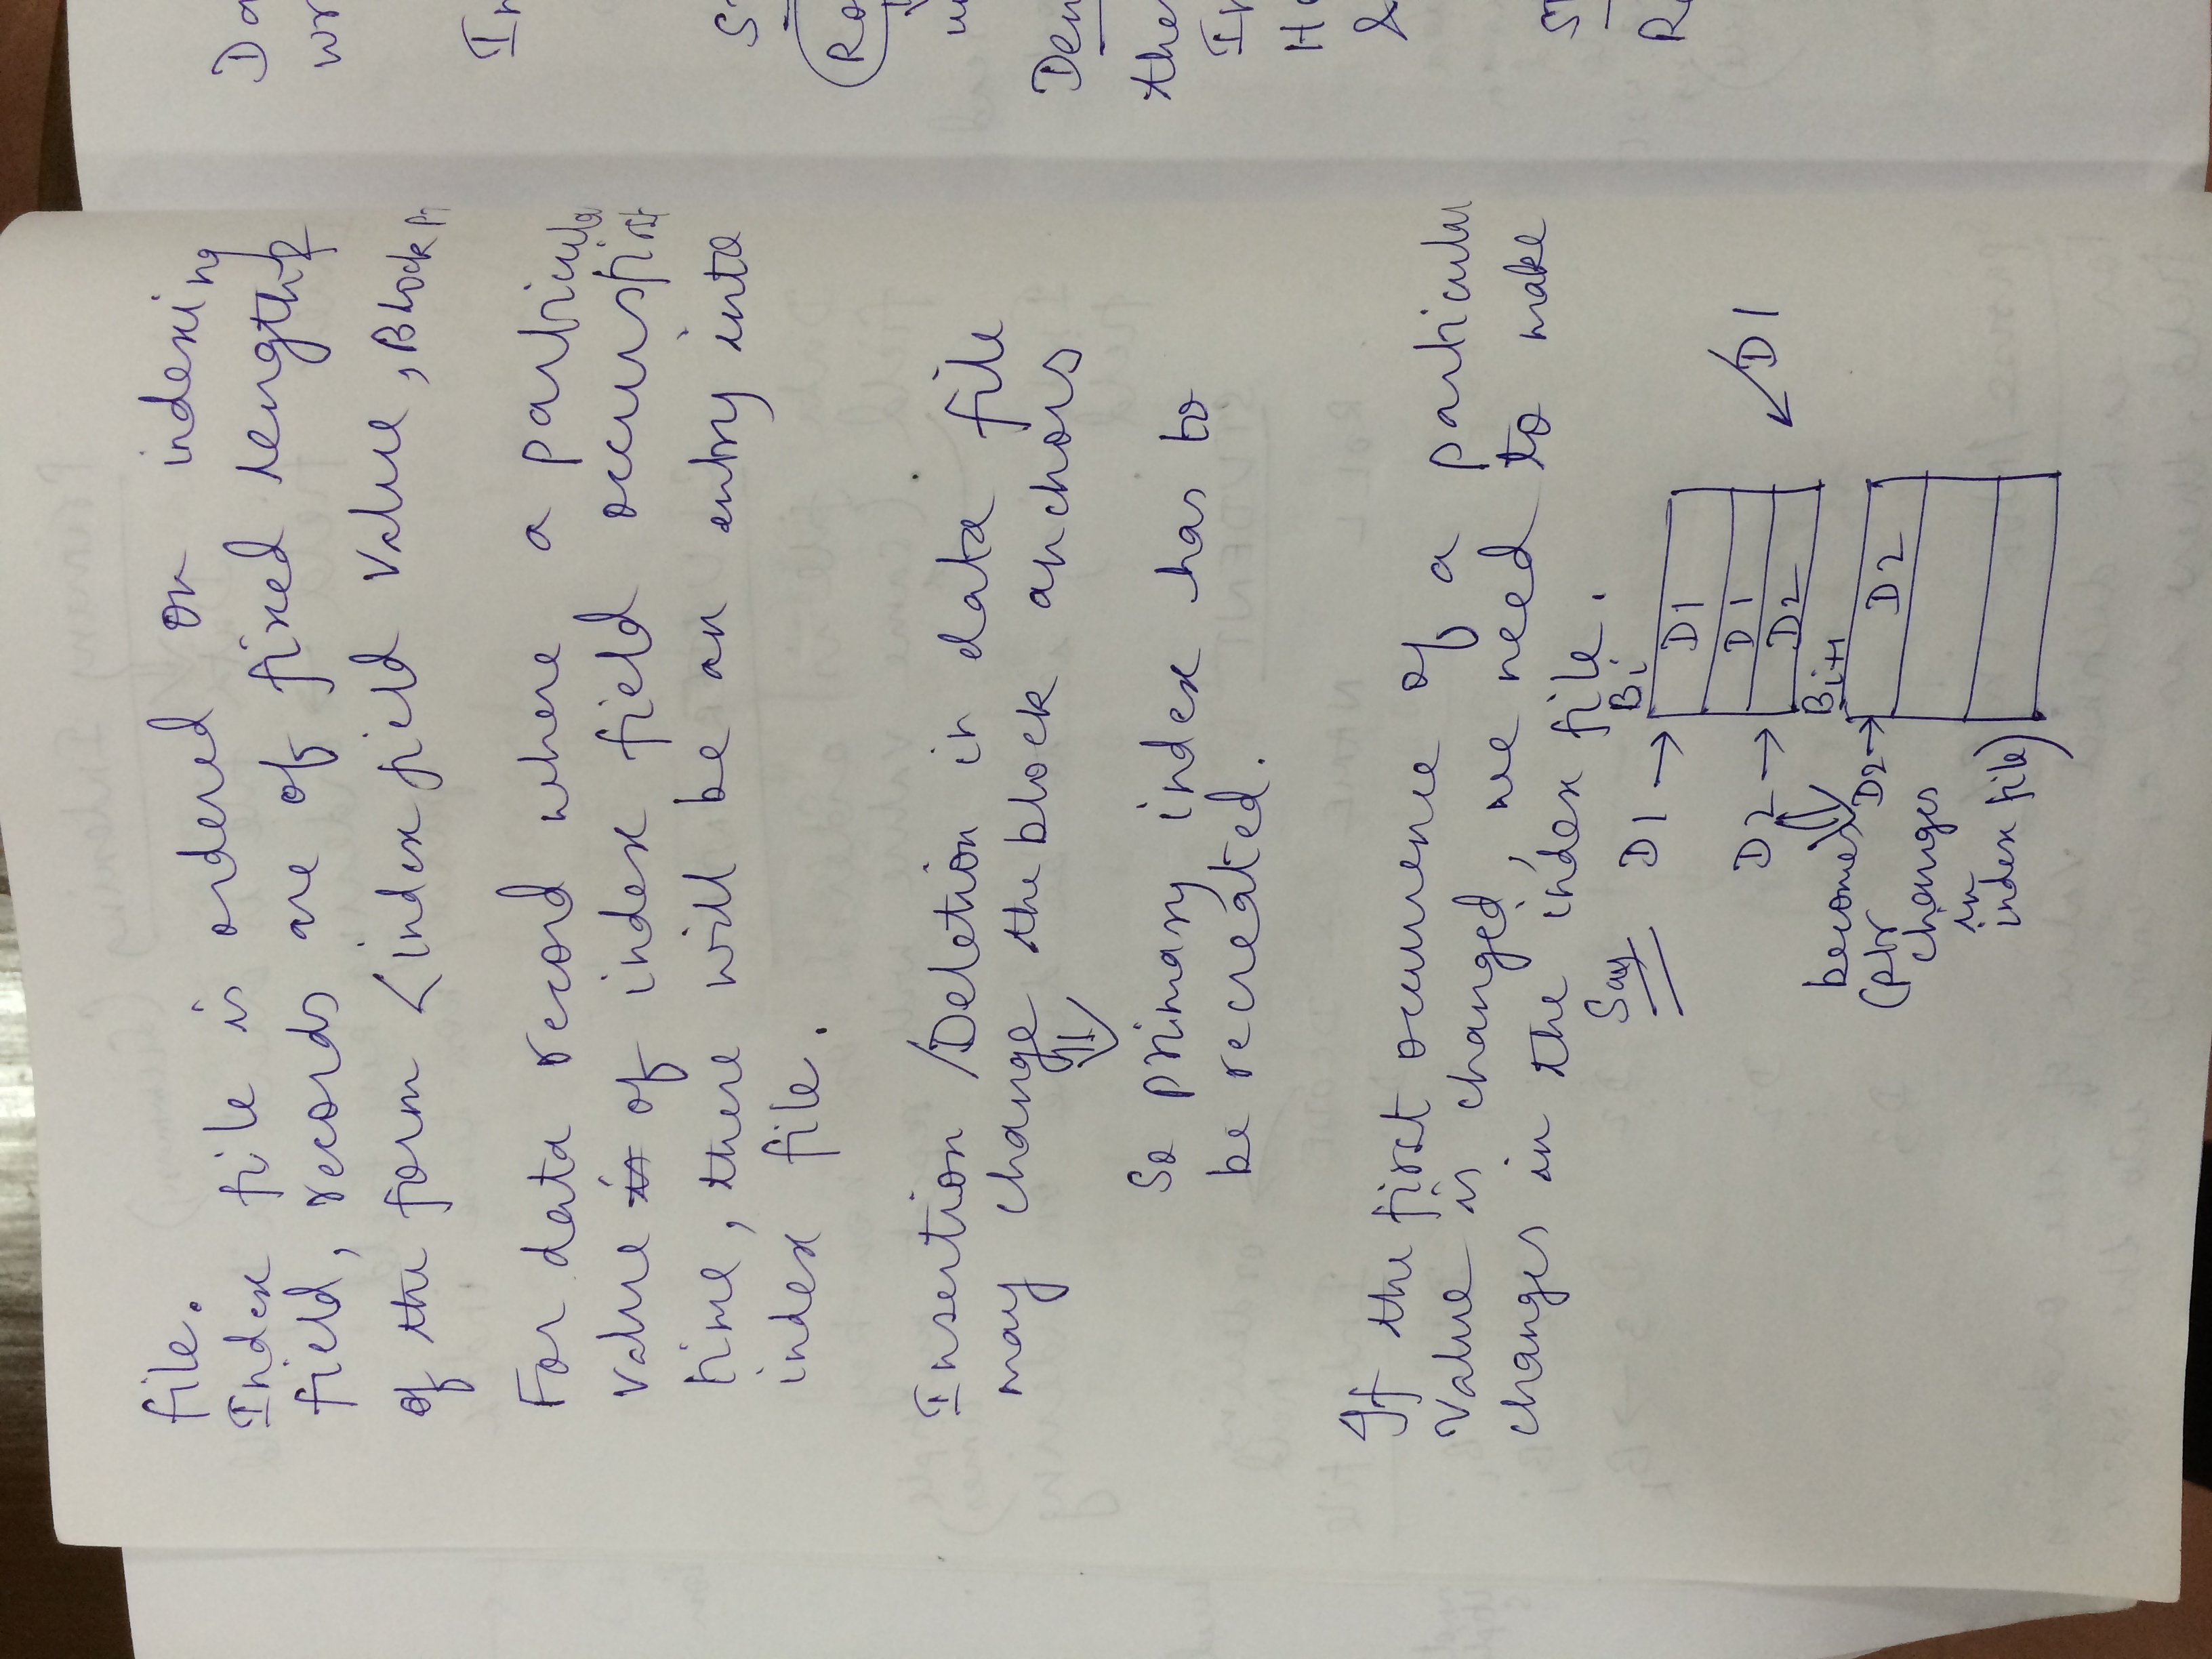 file.
Index file is ordered on indexing
field, records are of fixed length &
of the form <index field value, Block
For data record where a particula
value is of index field occurs first
time, there will be an entry into
index file.
Insertion /Deletion in data file
may change the block anchors
⇓
So primary index has to
be recreated.
If the first occurrence of a particular
value is changed, we need to make
changes in the index file.
Say
D1 →
Bi
D1
D1
D2 →
D2
D1
becomes
Bi+1
D2 →
D2
(ptr
changes
in
index file)
Da
wr
In
ST
Ro
un
Den
the
In
Ho
&
ST
Ro